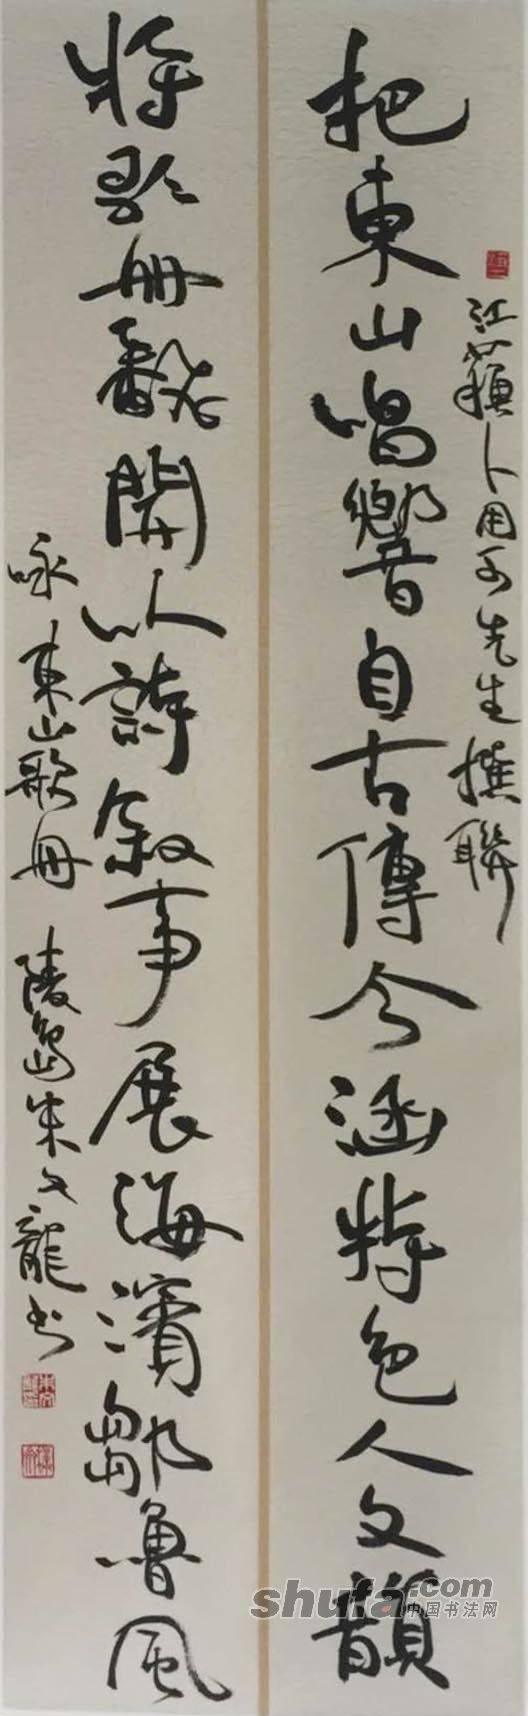 江蘇卜用可先生撰聯
把東山唱響自古傳今涵特色人文韻
将歌册翻開以詩叙事展海濱鄒魯風
咏東山歌册 陵島朱文龍书
shufa.com
中国书法网